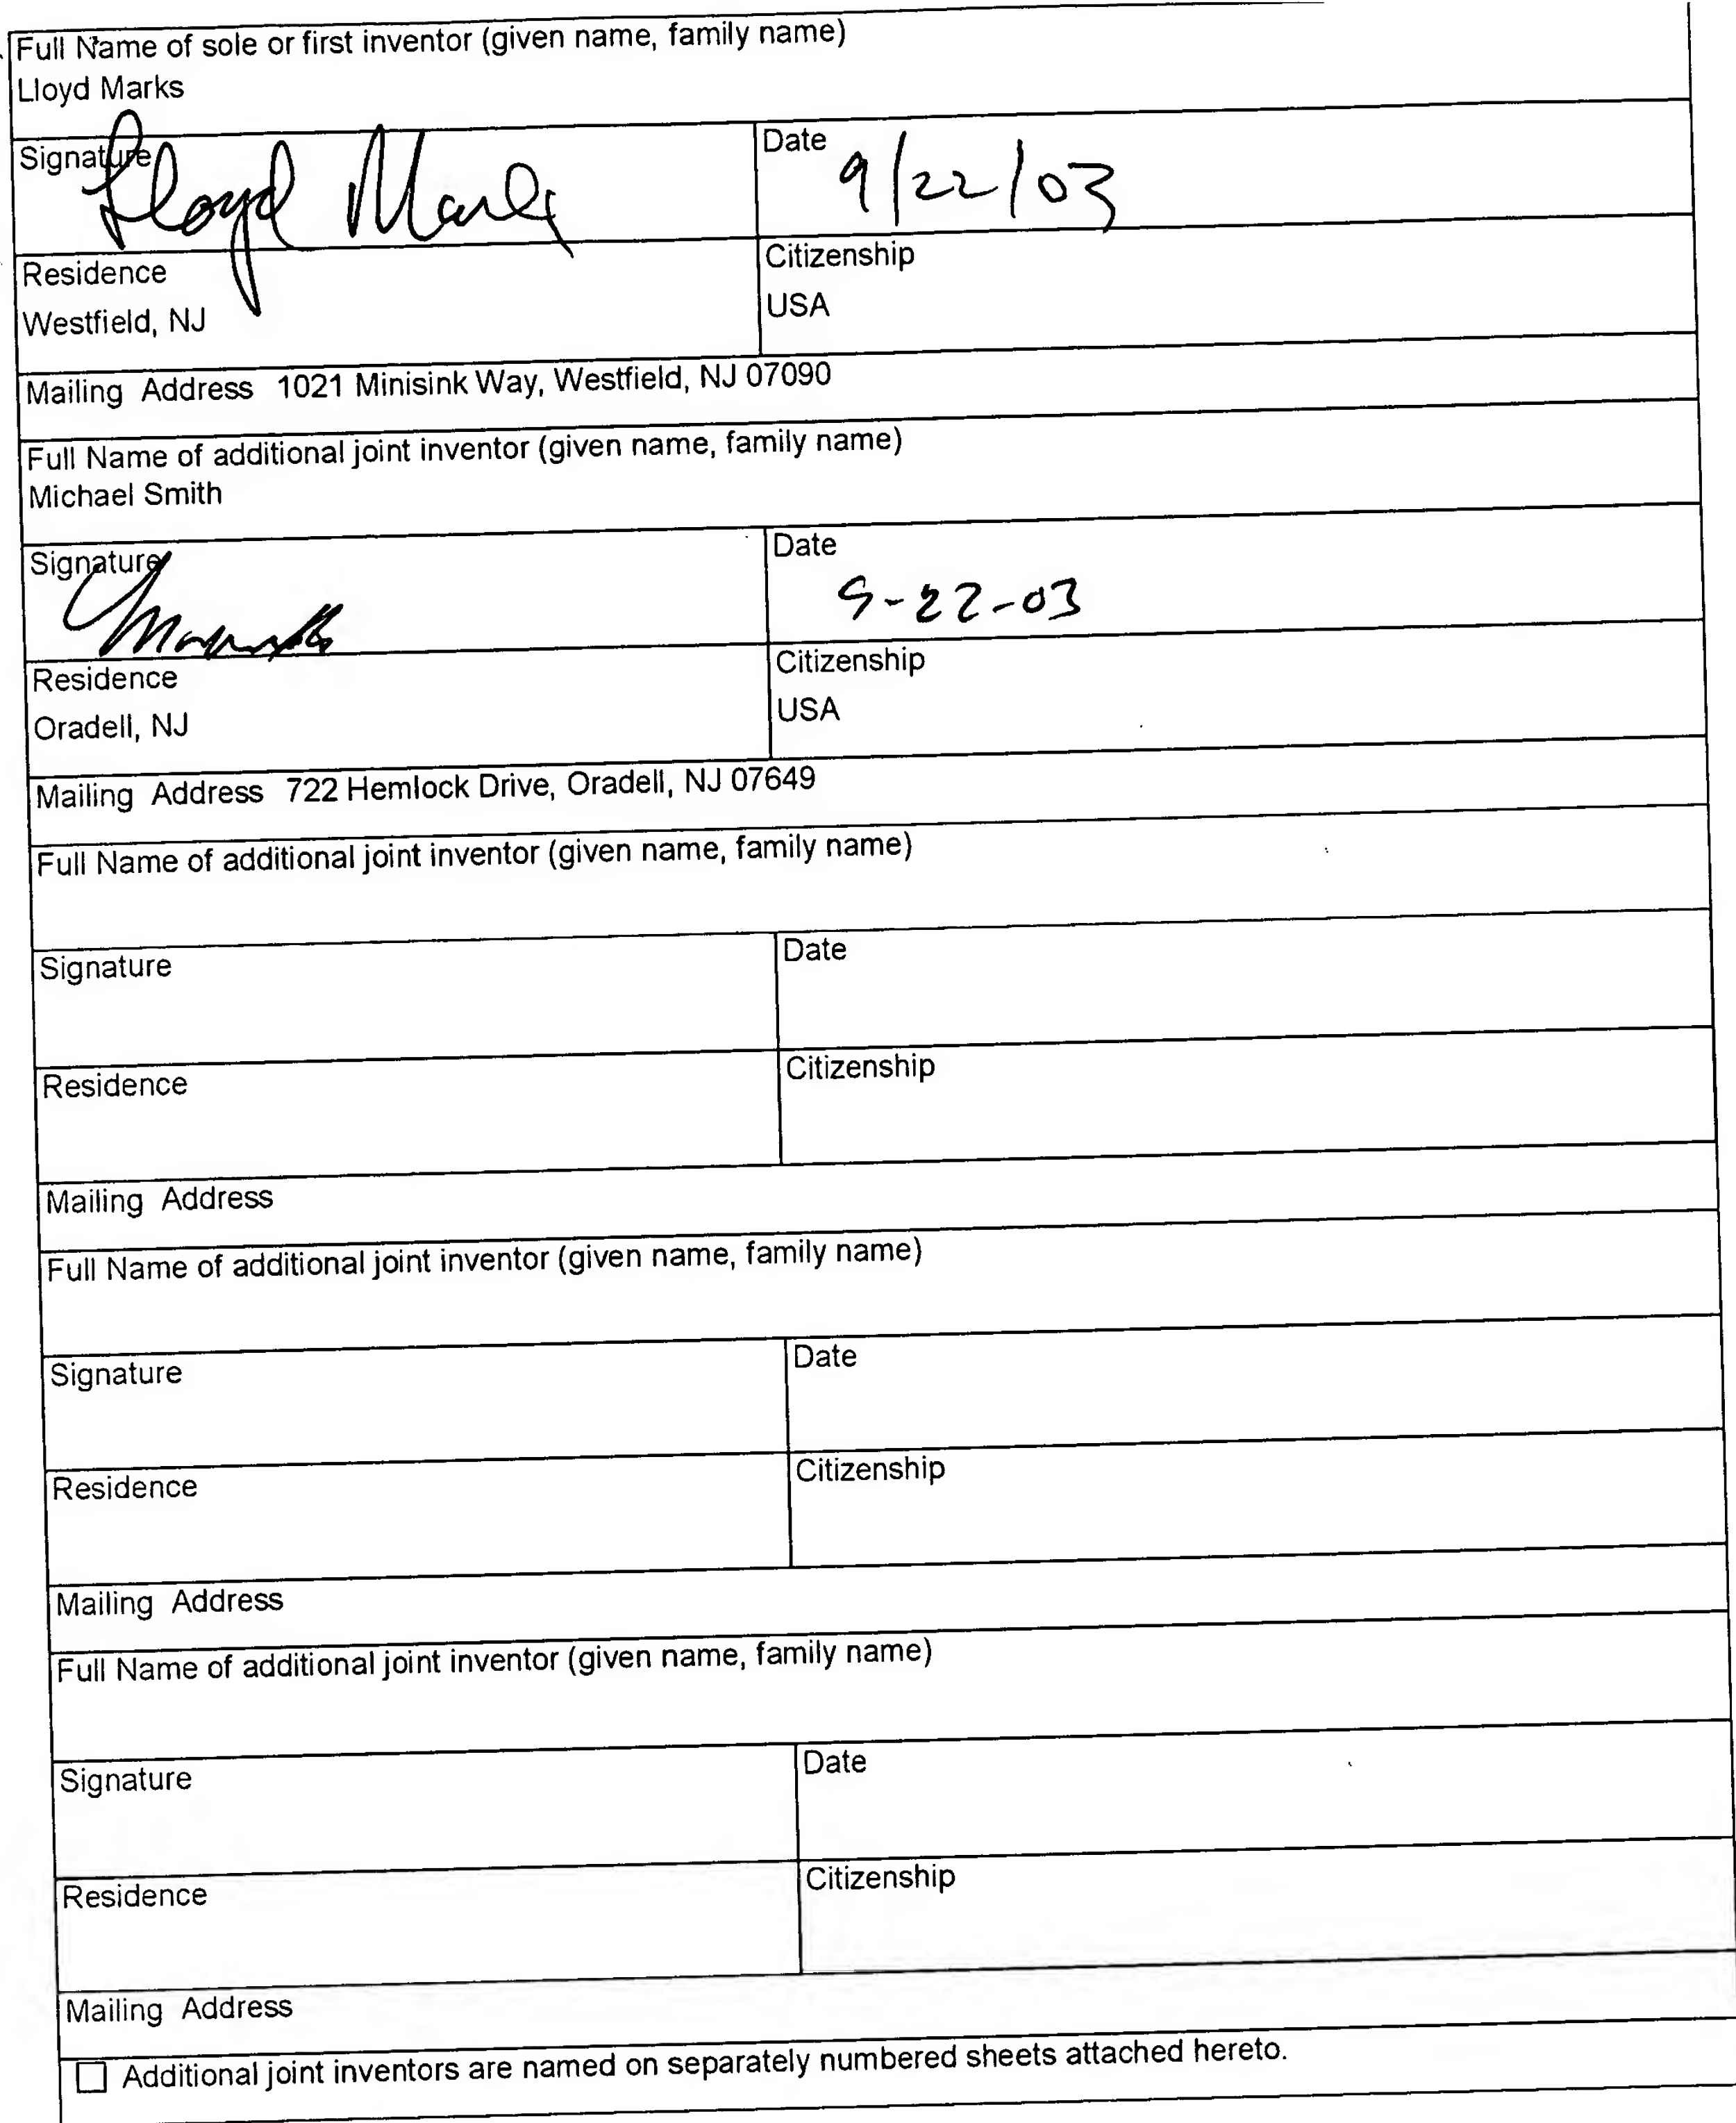 Full Name of sole or first inventor (given name, family name)
Lloyd Marks
Signature
Lloyd Marks
Date
9/22/03
Residence
Westfield, NJ
Citizenship
USA
Mailing Address 1021 Minisink Way, Westfield, NJ 07090
Full Name of additional joint inventor (given name, family name)
Michael Smith
Signature
Date
9-22-03
Residence
Oradell, NJ
Citizenship
USA
Mailing Address 722 Hemlock Drive, Oradell, NJ 07649
Full Name of additional joint inventor (given name, family name)
Signature
Date
Residence
Citizenship
Mailing Address
Full Name of additional joint inventor (given name, family name)
Signature
Date
Residence
Citizenship
Mailing Address
Full Name of additional joint inventor (given name, family name)
Signature
Date
Residence
Citizenship
Mailing Address
Additional joint inventors are named on separately numbered sheets attached hereto.